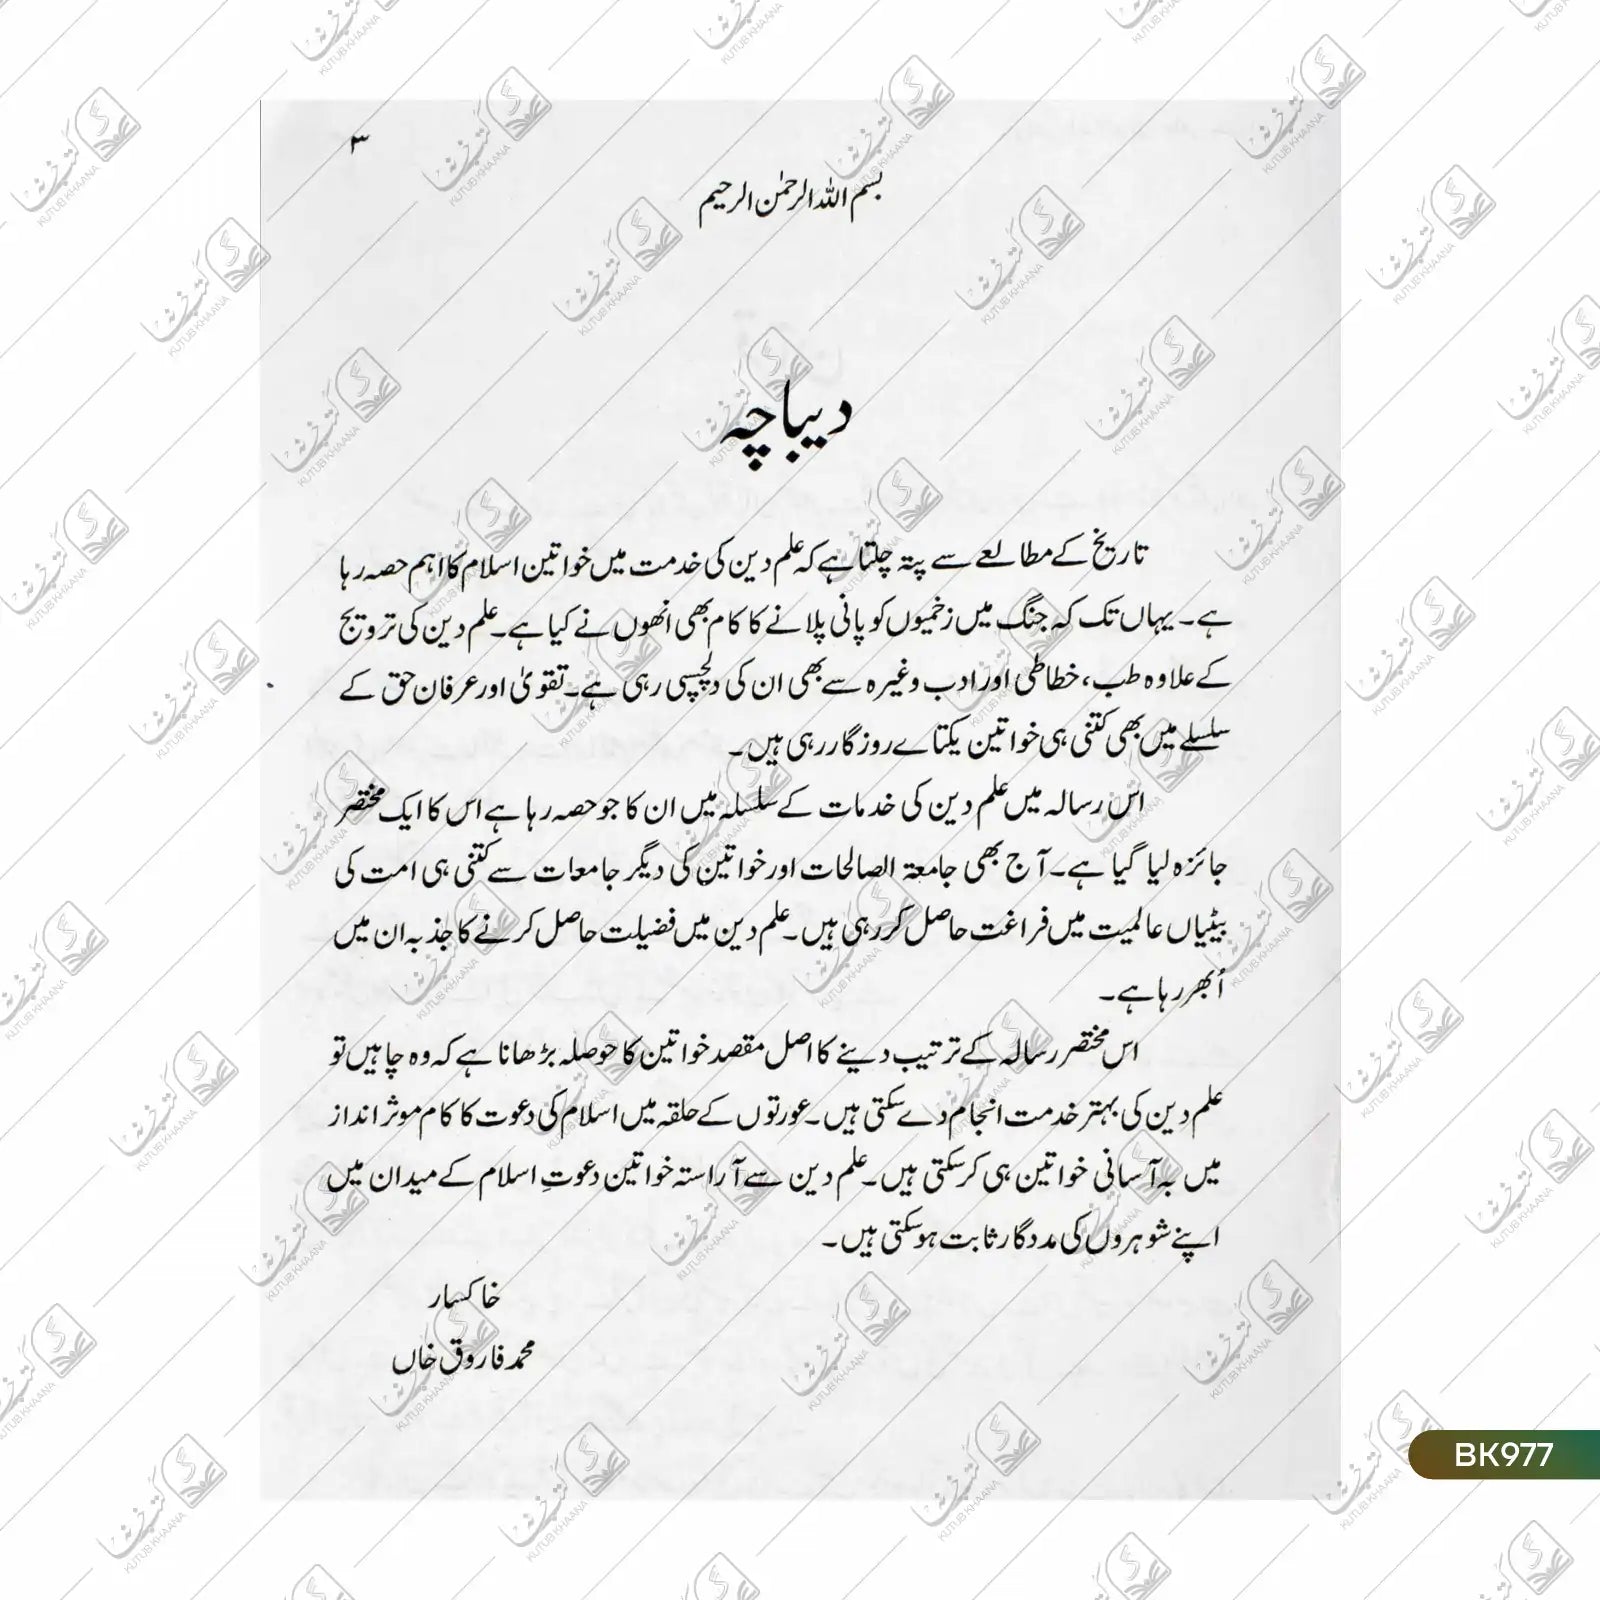 ۳
بسم اللہ الرحمٰن الرحیم
دیباچہ
تاریخ کے مطالعے سے پتہ چلتا ہے کہ علم دین کی خدمت میں خواتین اسلام کا اہم حصہ رہا
ہے۔ یہاں تک کہ جنگ میں زخمیوں کو پانی پلانے کا کام بھی انھوں نے کیا ہے۔ علم دین کی ترویج
کے علاوہ طب، خطاطی اور ادب وغیرہ سے بھی ان کی دلچسپی رہی ہے۔ تقویٰ اور عرفان حق کے
سلسلے میں بھی کتنی ہی خواتین یکتاے روزگار رہی ہیں۔
اس رسالہ میں علم دین کی خدمات کے سلسلہ میں ان کا جو حصہ رہا ہے اس کا ایک مختصر
جائزہ لیا گیا ہے۔ آج بھی جامعۃ الصالحات اور خواتین کی دیگر جامعات سے کتنی ہی امت کی
بیٹیاں عالمیت میں فراغت حاصل کر رہی ہیں۔ علم دین میں فضیلت حاصل کرنے کا جذبہ ان میں
اُبھر رہا ہے۔
اس مختصر رسالہ کے ترتیب دینے کا اصل مقصد خواتین کا حوصلہ بڑھانا ہے کہ وہ چاہیں تو
علم دین کی بہتر خدمت انجام دے سکتی ہیں۔ عورتوں کے حلقہ میں اسلام کی دعوت کا کام موثر انداز
میں بہ آسانی خواتین ہی کر سکتی ہیں۔ علم دین سے آراستہ خواتین دعوتِ اسلام کے میدان میں
اپنے شوہروں کی مددگار ثابت ہو سکتی ہیں۔
خاکسار
محمد فاروق خاں
BK977
کتب خانہ
KUTUB KHAANA